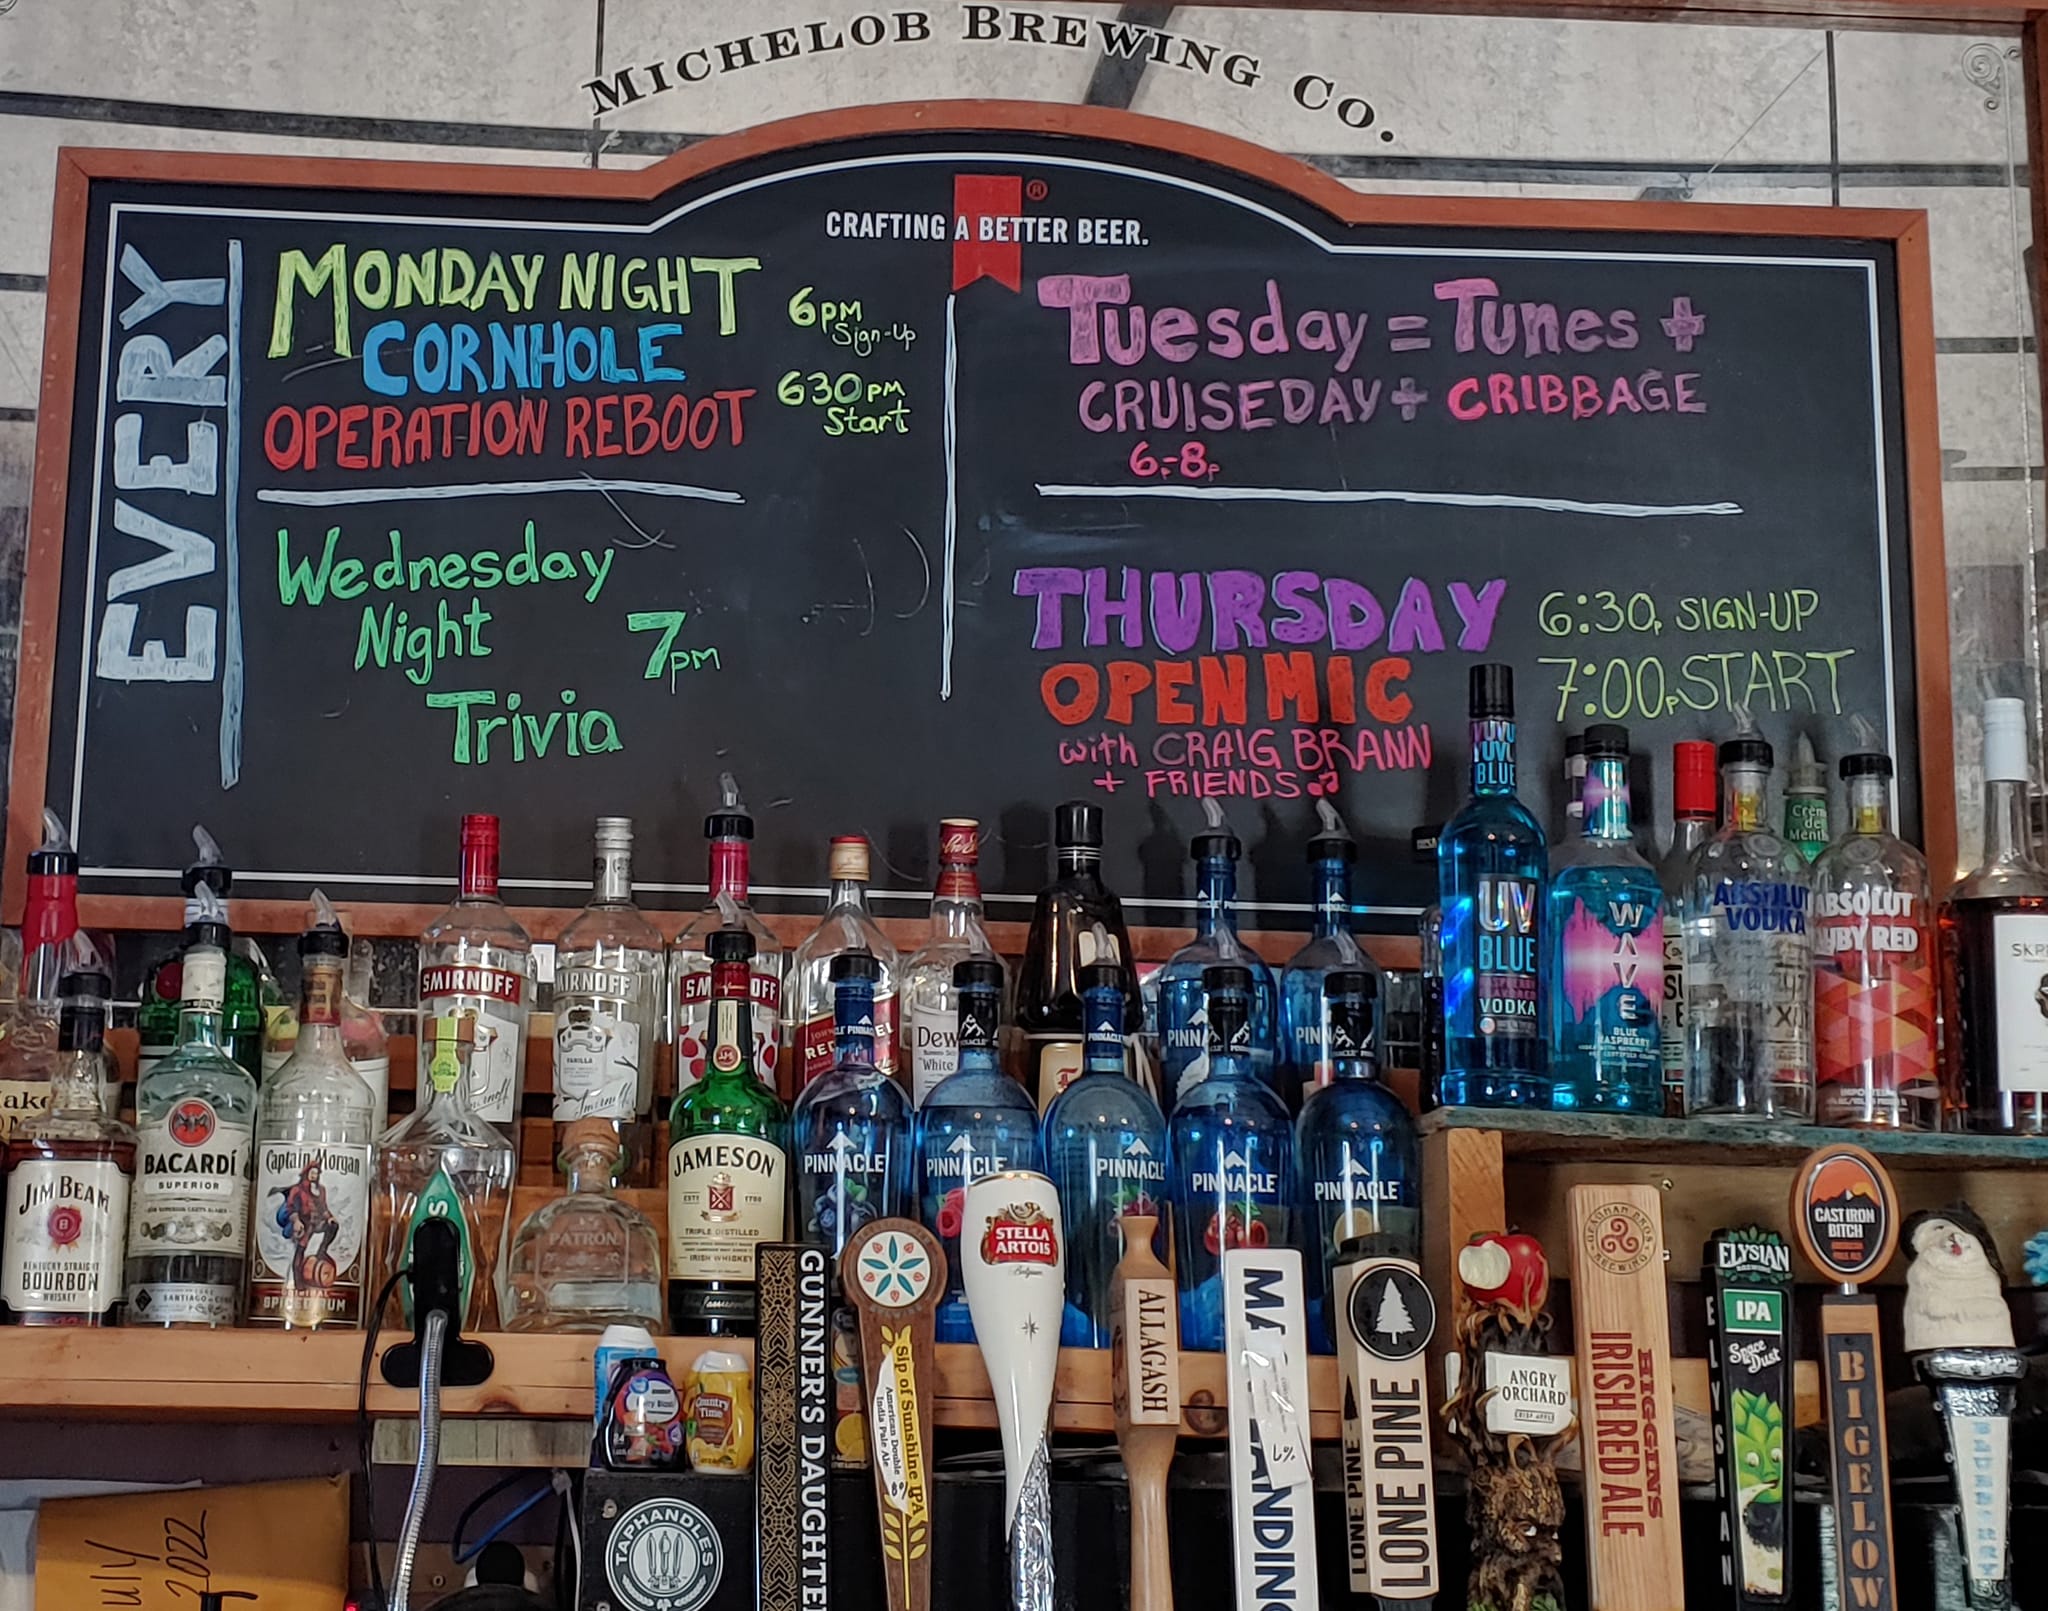 MICHELOB BREWING CO.
CRAFTING A BETTER BEER.
EVERY
MONDAY NIGHT
CORNHOLE
OPERATION REBOOT
6PM
Sign-Up
630PM
Start
Tuesday = Tunes +
CRUISEDAY + CRIBBAGE
6P-8P
Wednesday
Night
7PM
Trivia
THURSDAY
OPEN MIC
with CRAIG BRANN
+ FRIENDS
6:30P SIGN-UP
7:00P START
UV
BLUE
VODKA
WAVE
BLUE
RASPBERRY
ABSOLUT
VODKA
ABSOLUT
RUBY RED
SMIRNOFF
VANILLA
JIM BEAM
KENTUCKY STRAIGHT
BOURBON
WHISKEY
BACARDÍ
SUPERIOR
Captain Morgan
ORIGINAL
SPICED RUM
PATRÓN
JAMESON
TRIPLE DISTILLED
IRISH WHISKEY
PINNACLE
PINNACLE
PINNACLE
PINNACLE
PINNACLE
GUNNER'S DAUGHTER
Sip of Sunshine IPA
American Double
India Pale Ale
STELLA
ARTOIS
Belgium
ALLAGASH
LONE PINE
LONE PINE
ANGRY
ORCHARD
CRISP APPLE
HIGGINS
IRISH RED ALE
ELYSIAN
IPA
Space
Dust
ELYSIAN
CAST IRON
BITCH
BIGELOW
Country
Time
TAPHANDLES
2022